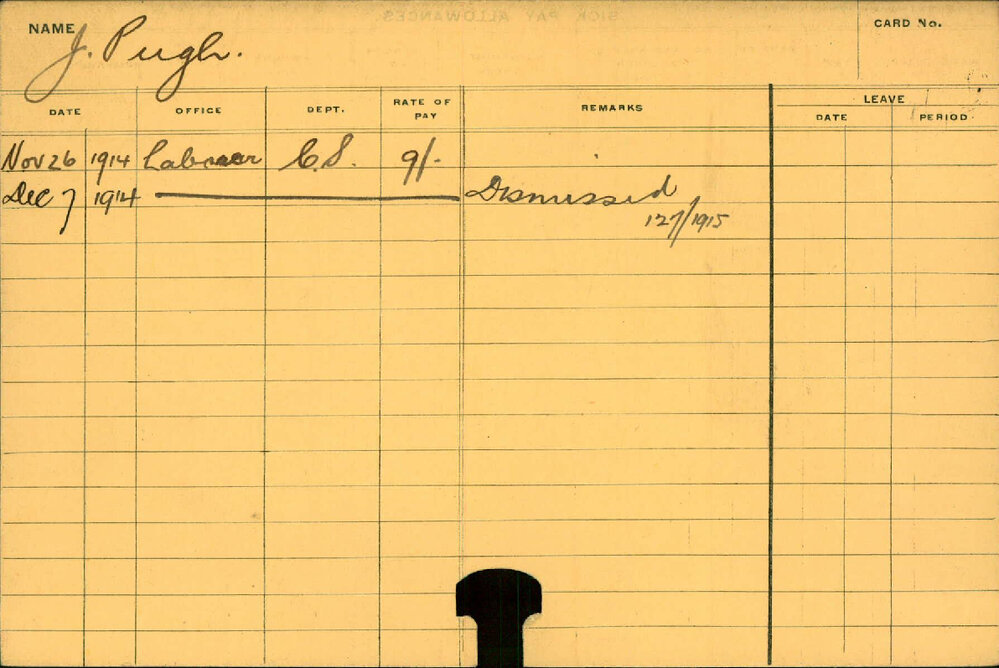 SICK PAY ALLOWANCES.
NAME J. Pugh.
CARD No.
DATE OFFICE DEPT. RATE OF PAY REMARKS LEAVE
DATE PERIOD
Nov 26 1914 Labourer C.S. 9/-
Dec 7 1914 Dismissed
127/1915